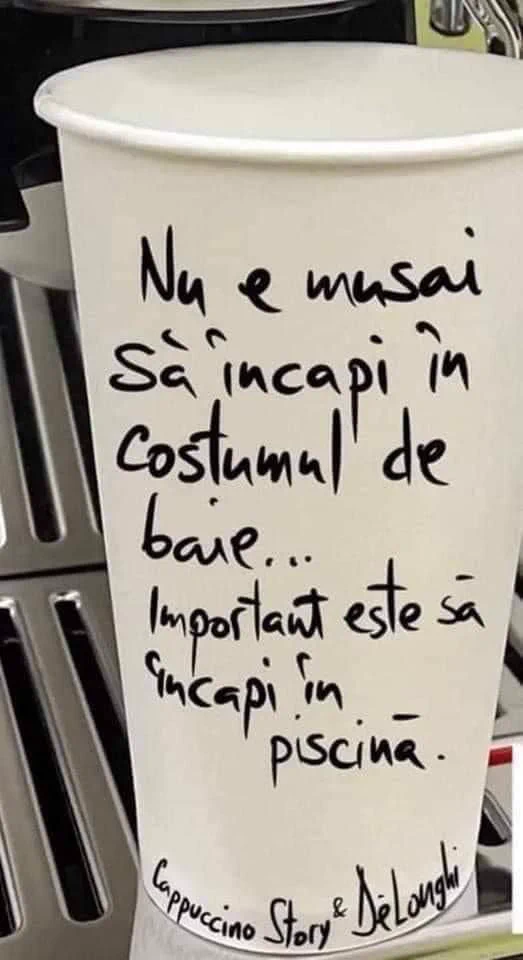 Nu e musai
Să încapi în
costumul de
baie...
Important este să
încapi în
piscină.
Cappuccino Story & DeLonghi